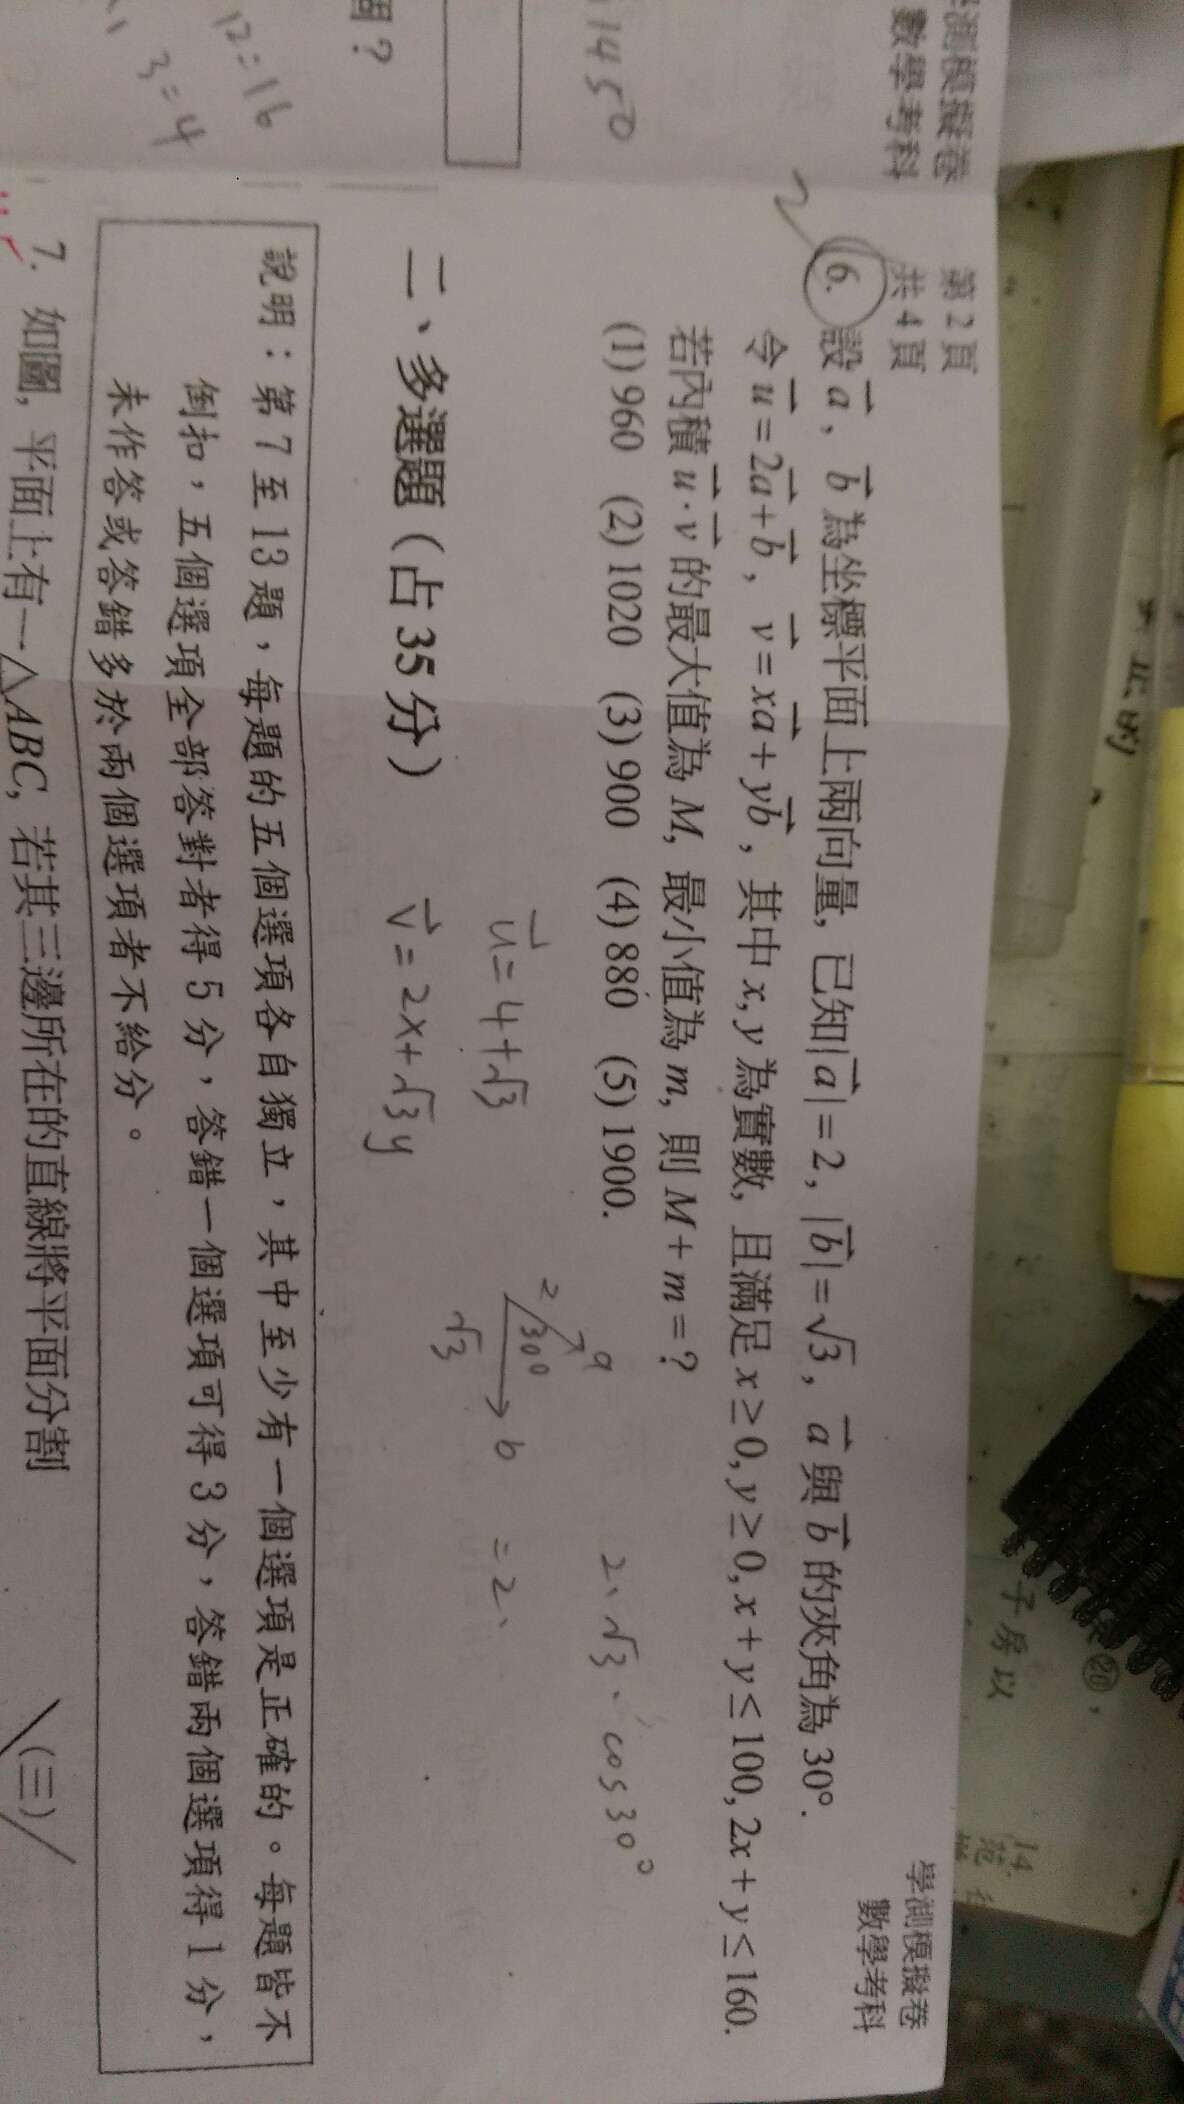 學測模擬卷
數學考科
第 2 頁
共 4 頁
學測模擬卷
數學考科
6. 設 $\vec{a}$，$\vec{b}$ 為坐標平面上兩向量, 已知 $|\vec{a}|=2$，$|\vec{b}|=\sqrt{3}$，$\vec{a}$ 與 $\vec{b}$ 的夾角為 30°.
令 $\vec{u}=2\vec{a}+\vec{b}$，$\vec{v}=x\vec{a}+y\vec{b}$，其中 x, y 為實數, 且滿足 x≥0, y≥0, x+y≤100, 2x+y≤160.
若內積 $\vec{u}\cdot\vec{v}$ 的最大值為 M, 最小值為 m, 則 M+m=？
(1) 960 (2) 1020 (3) 900 (4) 880 (5) 1900.
2、√3．cos30°
$\vec{u}$=4+√3
$\vec{v}$=2x+√3y
2 30° a
b
√3
=2、
二、多選題（占 35 分）
說明：第 7 至 13 題，每題的五個選項各自獨立，其中至少有一個選項是正確的。每題皆不
倒扣，五個選項全部答對者得 5 分，答錯一個選項可得 3 分，答錯兩個選項得 1 分，
未作答或答錯多於兩個選項者不給分。
7. 如圖, 平面上有一△ABC, 若其三邊所在的直線將平面分割
(三)
1450
個？
12=16
3=4
子房以
⑳，
14